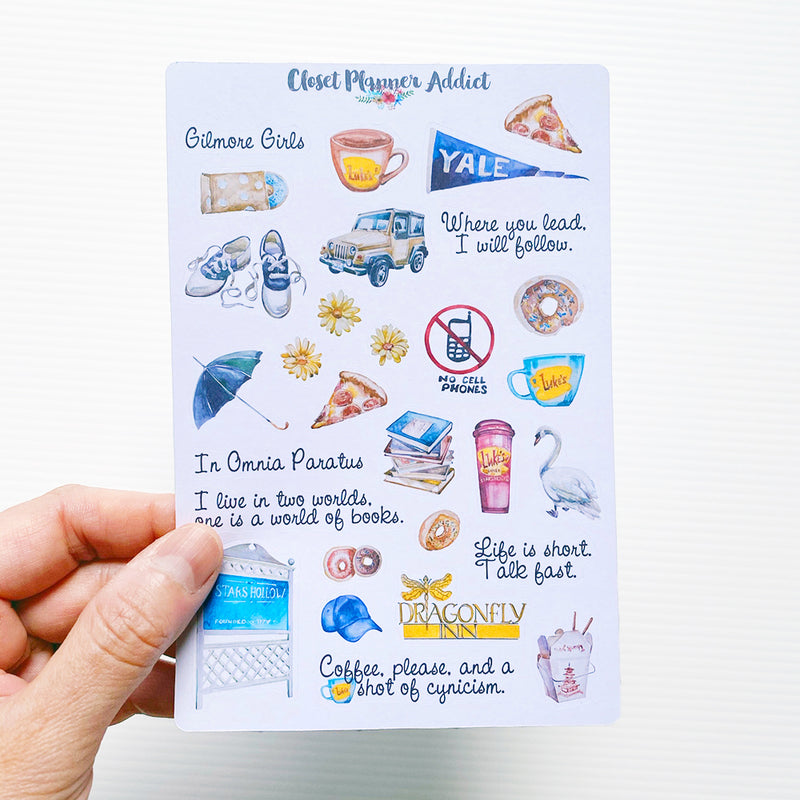 Closet Planner Addict
Gilmore Girls
Luke's
YALE
Where you lead,
I will follow.
NO CELL
PHONES
Luke's
In Omnia Paratus
Luke's
I live in two worlds,
one is a world of books.
Life is short.
Talk fast.
STARS HOLLOW
DRAGONFLY
INN
Coffee, please, and a
shot of cynicism.